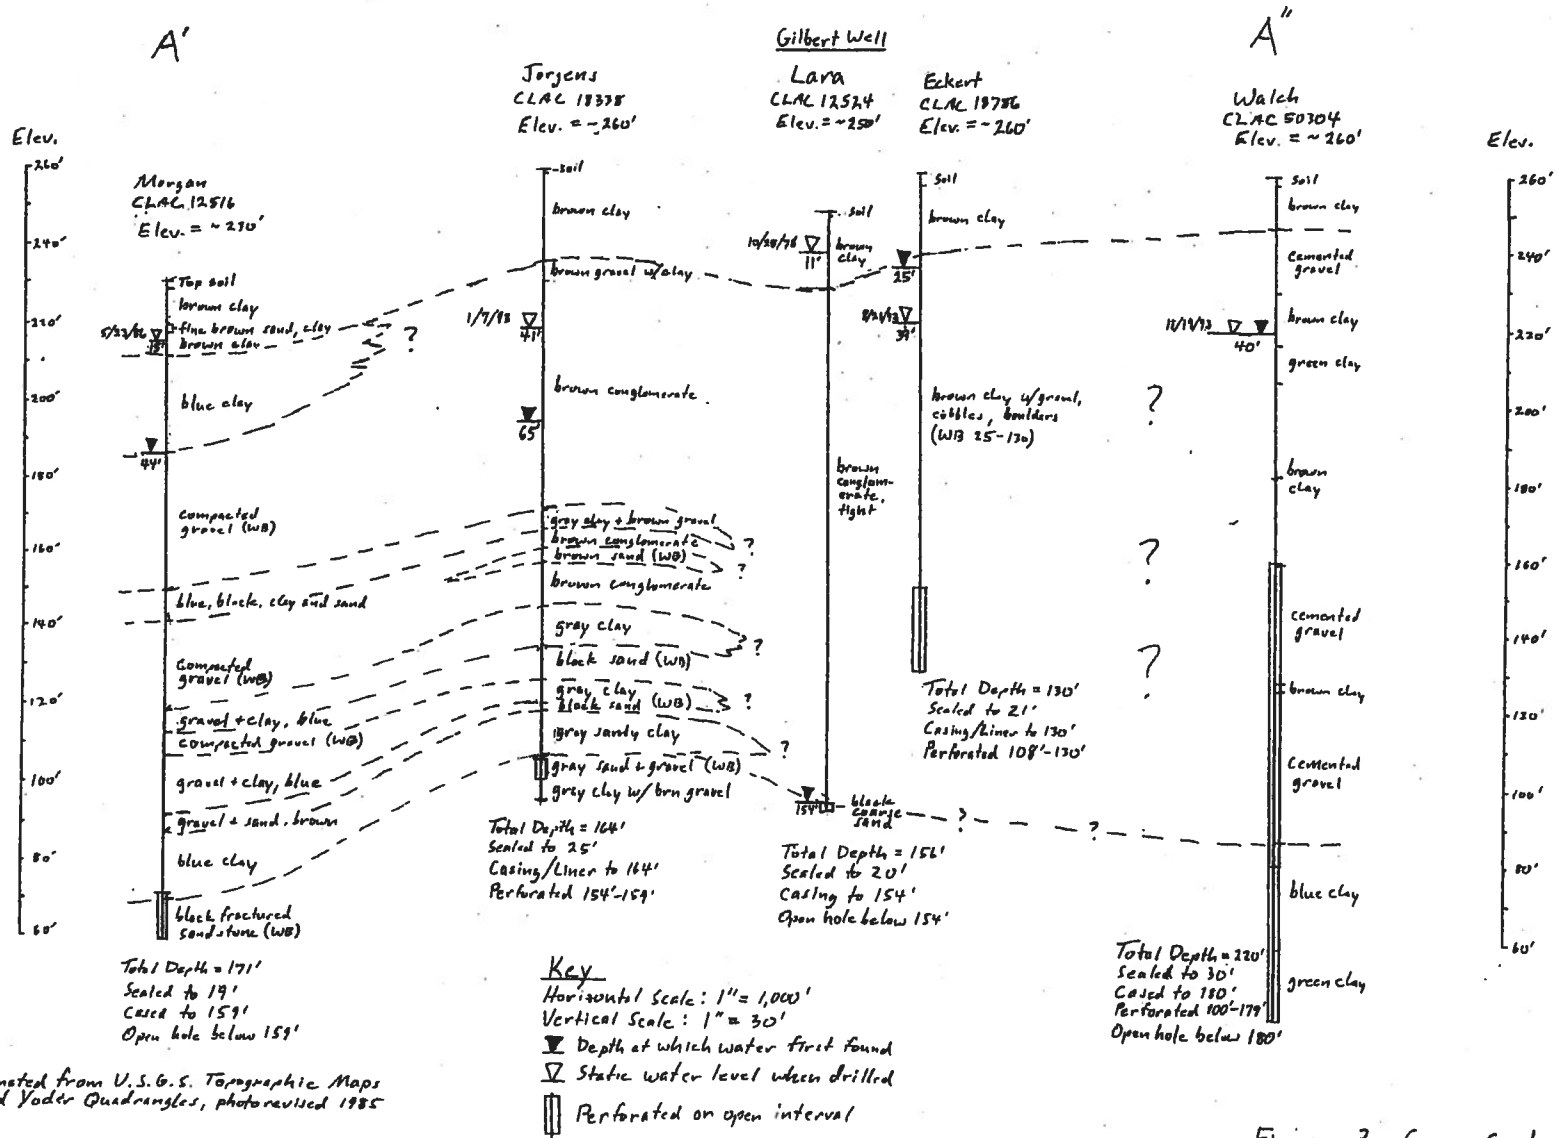 A'
A"
Gilbert Well
Jorgens
CLAC 18338
Elev. = ~260'
Lara
CLAC 12524
Elev. = ~250'
Eckert
CLAC 18786
Elev. = ~260'
Walch
CLAC 50304
Elev. = ~260'
Elev.
260'
240'
220'
200'
180'
160'
140'
120'
100'
80'
60'
Morgan
CLAC 12516
Elev. = ~230'
Top soil
brown clay
fine brown sand, clay
brown clay
5/23/86
15'
blue clay
44'
compacted
gravel (WB)
blue, black, clay and sand
compacted
gravel (WB)
gravel + clay, blue
compacted gravel (WB)
gravel + clay, blue
gravel + sand, brown
blue clay
black fractured
sandstone (WB)
Total Depth = 171'
Sealed to 19'
Cased to 159'
Open hole below 159'
?
soil
brown clay
brown gravel w/clay
1/7/93
41'
brown conglomerate
65'
gray clay + brown gravel
brown conglomerate
brown sand (WB)
brown conglomerate
gray clay
black sand (WB)
gray clay
black sand (WB)
gray sandy clay
gray sand + gravel (WB)
grey clay w/ brn gravel
?
?
?
?
?
Total Depth = 164'
Sealed to 25'
Casing/Liner to 164'
Perforated 154'-159'
soil
10/28/76
11'
brown
clay
brown
conglom-
erate,
tight
154'
black
coarse
sand
Total Depth = 156'
Sealed to 20'
Casing to 154'
Open hole below 154'
soil
brown clay
25'
39'
brown clay w/gravel,
cobbles, boulders
(WB 25-130)
Total Depth = 130'
Sealed to 21'
Casing/Liner to 130'
Perforated 108'-130'
?
?
?
?
?
soil
brown clay
cemented
gravel
brown clay
11/19/93
40'
green clay
brown
clay
cemented
gravel
brown clay
cemented
gravel
blue clay
green clay
Total Depth = 220'
Sealed to 30'
Cased to 180'
Perforated 100'-179'
Open hole below 180'
Elev.
260'
240'
220'
200'
180'
160'
140'
120'
100'
80'
60'
Key
Horizontal Scale: 1" = 1,000'
Vertical Scale: 1" = 30'
Depth at which water first found
Static water level when drilled
Perforated or open interval
from U.S.G.S. Topographic Maps
Yoder Quadrangles, photorevised 1985